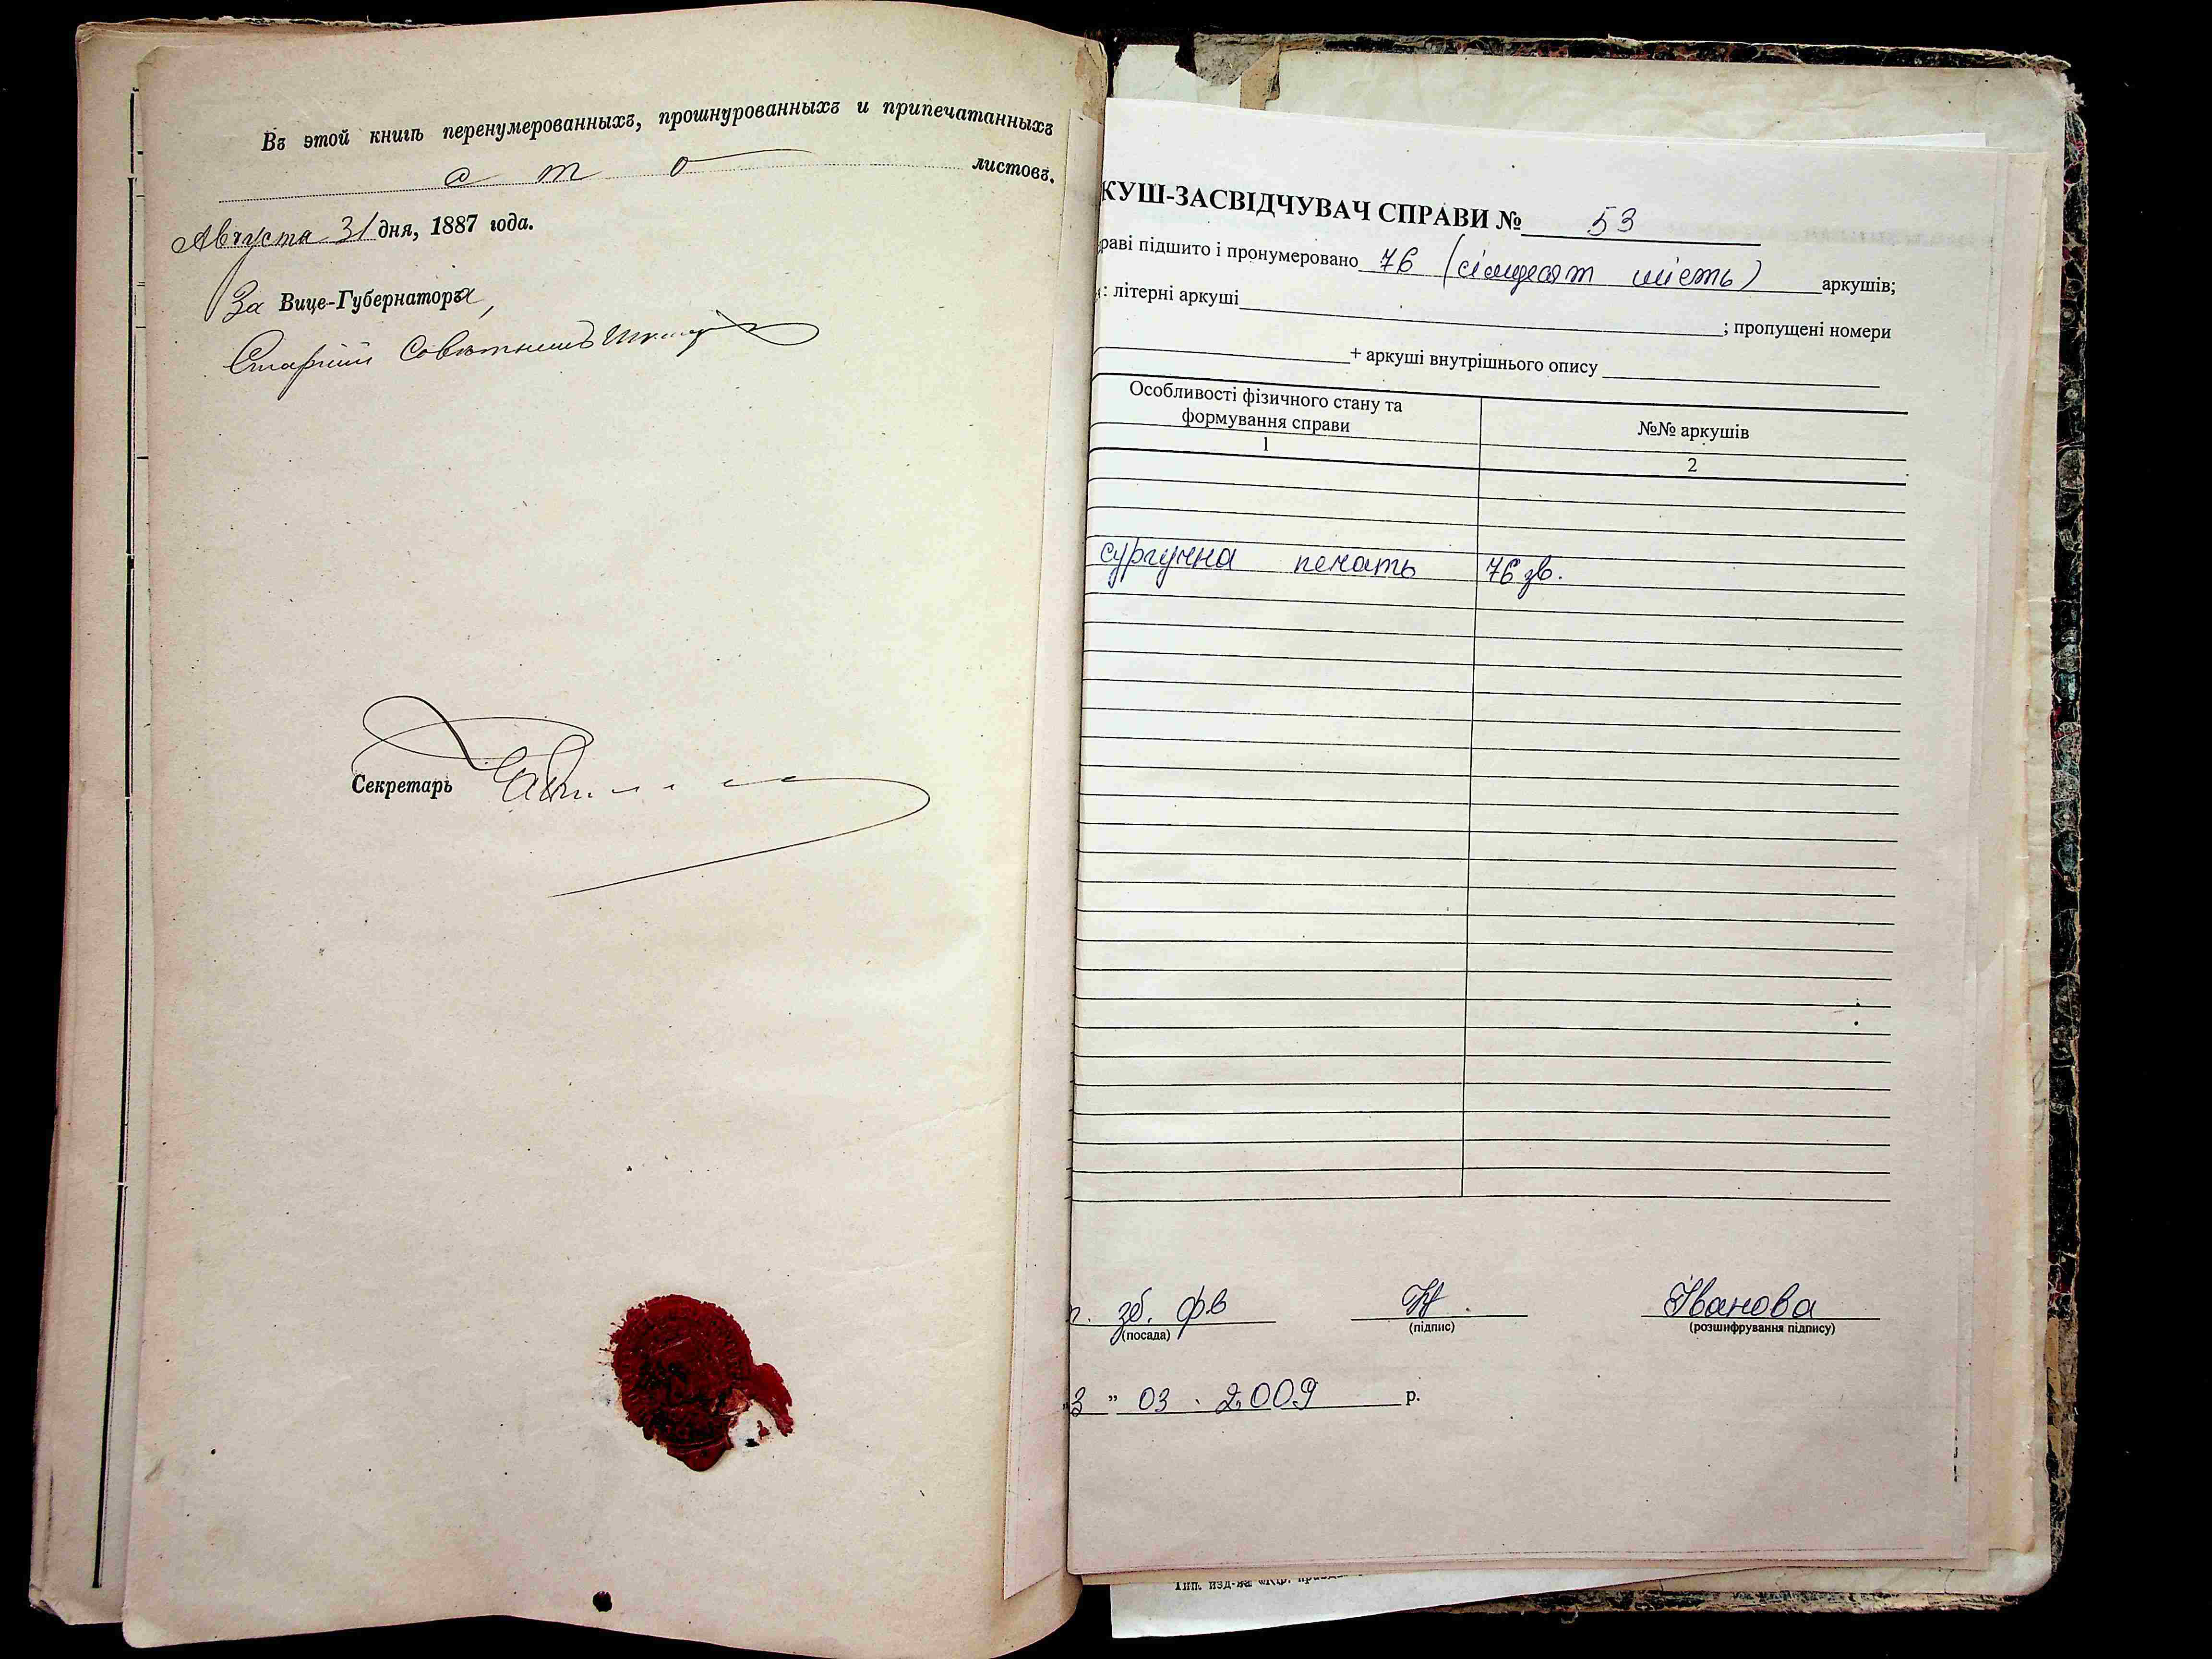 Въ этой книгѣ перенумерованныхъ, прошнурованныхъ и припечатанныхъ
с т о листовъ.
Августа 31 дня, 1887 года.
За Вице-Губернатора,
Старшій Совѣтникъ
Секретарь
КУШ-ЗАСВІДЧУВАЧ СПРАВИ № 53
раві підшито і пронумеровано 76 (сімдесят шість) аркушів;
: літерні аркуші ; пропущені номери
+ аркуші внутрішнього опису
Особливості фізичного стану та формування справи
№№ аркушів
1
2
сургучна печать 76 зв.
зб. фв Іванова
(посада) (підпис) (розшифрування підпису)
3 " 03 . 2009 р.
Тип. изд-ва